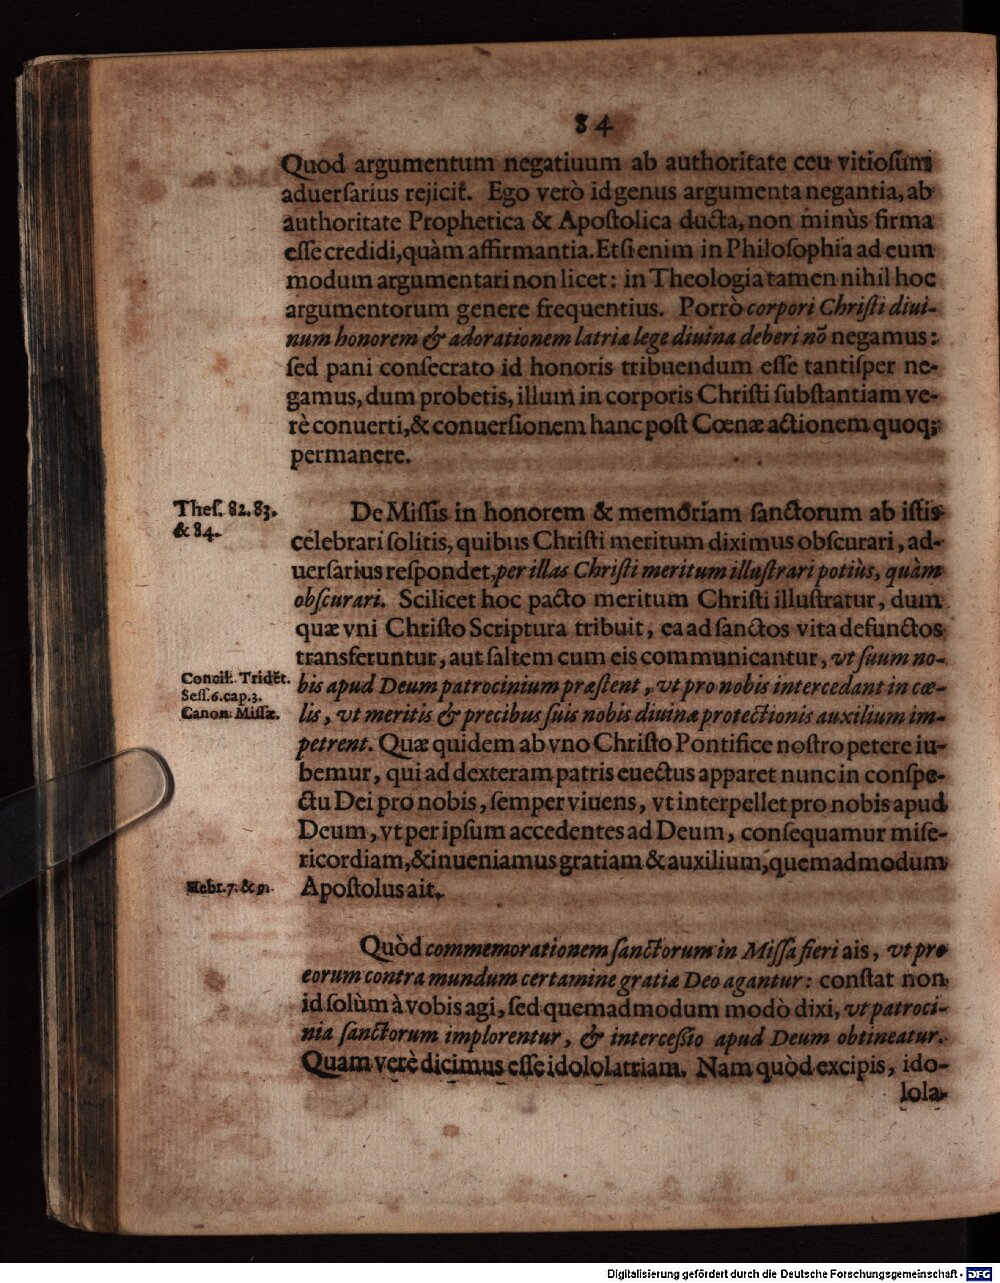 84
Quod argumentum negatiuum ab authoritate ceu vitiosum
aduersarius rejicit. Ego verò id genus argumenta negantia, ab
authoritate Prophetica & Apostolica ducta, non minùs firma
esse credidi, quàm affirmantia. Etsi enim in Philosophia ad eum
modum argumentari non licet: in Theologia tamen nihil hoc
argumentorum genere frequentius. Porrò corpori Christi diui-
num honorem & adorationem latriæ lege diuina deberi nõ negamus:
sed pani consecrato id honoris tribuendum esse tantisper ne-
gamus, dum probetis, illum in corporis Christi substantiam ve-
rè conuerti, & conuersionem hanc post Cœnæ actionem quoq;
permanere.
Thes. 82. 83.
& 84.
De Missis in honorem & memoriam sanctorum ab istis
celebrari solitis, quibus Christi meritum diximus obscurari, ad-
uersarius respondet, per illas Christi meritum illustrari potiùs, quàm
obscurari. Scilicet hoc pacto meritum Christi illustratur, dum
quæ vni Christo Scriptura tribuit, ea ad sanctos vita defunctos
transferuntur, aut saltem cum eis communicantur, vt suum no-
Concil. Tridẽt.
Sess. 6. cap. 3.
Canon. Missæ.
bis apud Deum patrocinium præstent, vt pro nobis intercedant in cœ-
lis, vt meritis & precibus suis nobis diuinæ protectionis auxilium im-
petrent. Quæ quidem ab vno Christo Pontifice nostro petere iu-
bemur, qui ad dexteram patris euectus apparet nunc in conspe-
ctu Dei pro nobis, semper viuens, vt interpellet pro nobis apud
Deum, vt per ipsum accedentes ad Deum, consequamur mise-
ricordiam, & inueniamus gratiam & auxilium, quemadmodum
Hebr. 7. & 9.
Apostolus ait.
Quòd commemorationem sanctorum in Missa fieri ais, vt pro
eorum contra mundum certamine gratiæ Deo agantur: constat non
id solùm à vobis agi, sed quemadmodum modò dixi, vt patroci-
nia sanctorum implorentur, & intercessio apud Deum obtineatur.
Quam verè dicimus esse idololatriam. Nam quòd excipis, ido-
lola-
Digitalisierung gefördert durch die Deutsche Forschungsgemeinschaft - DFG